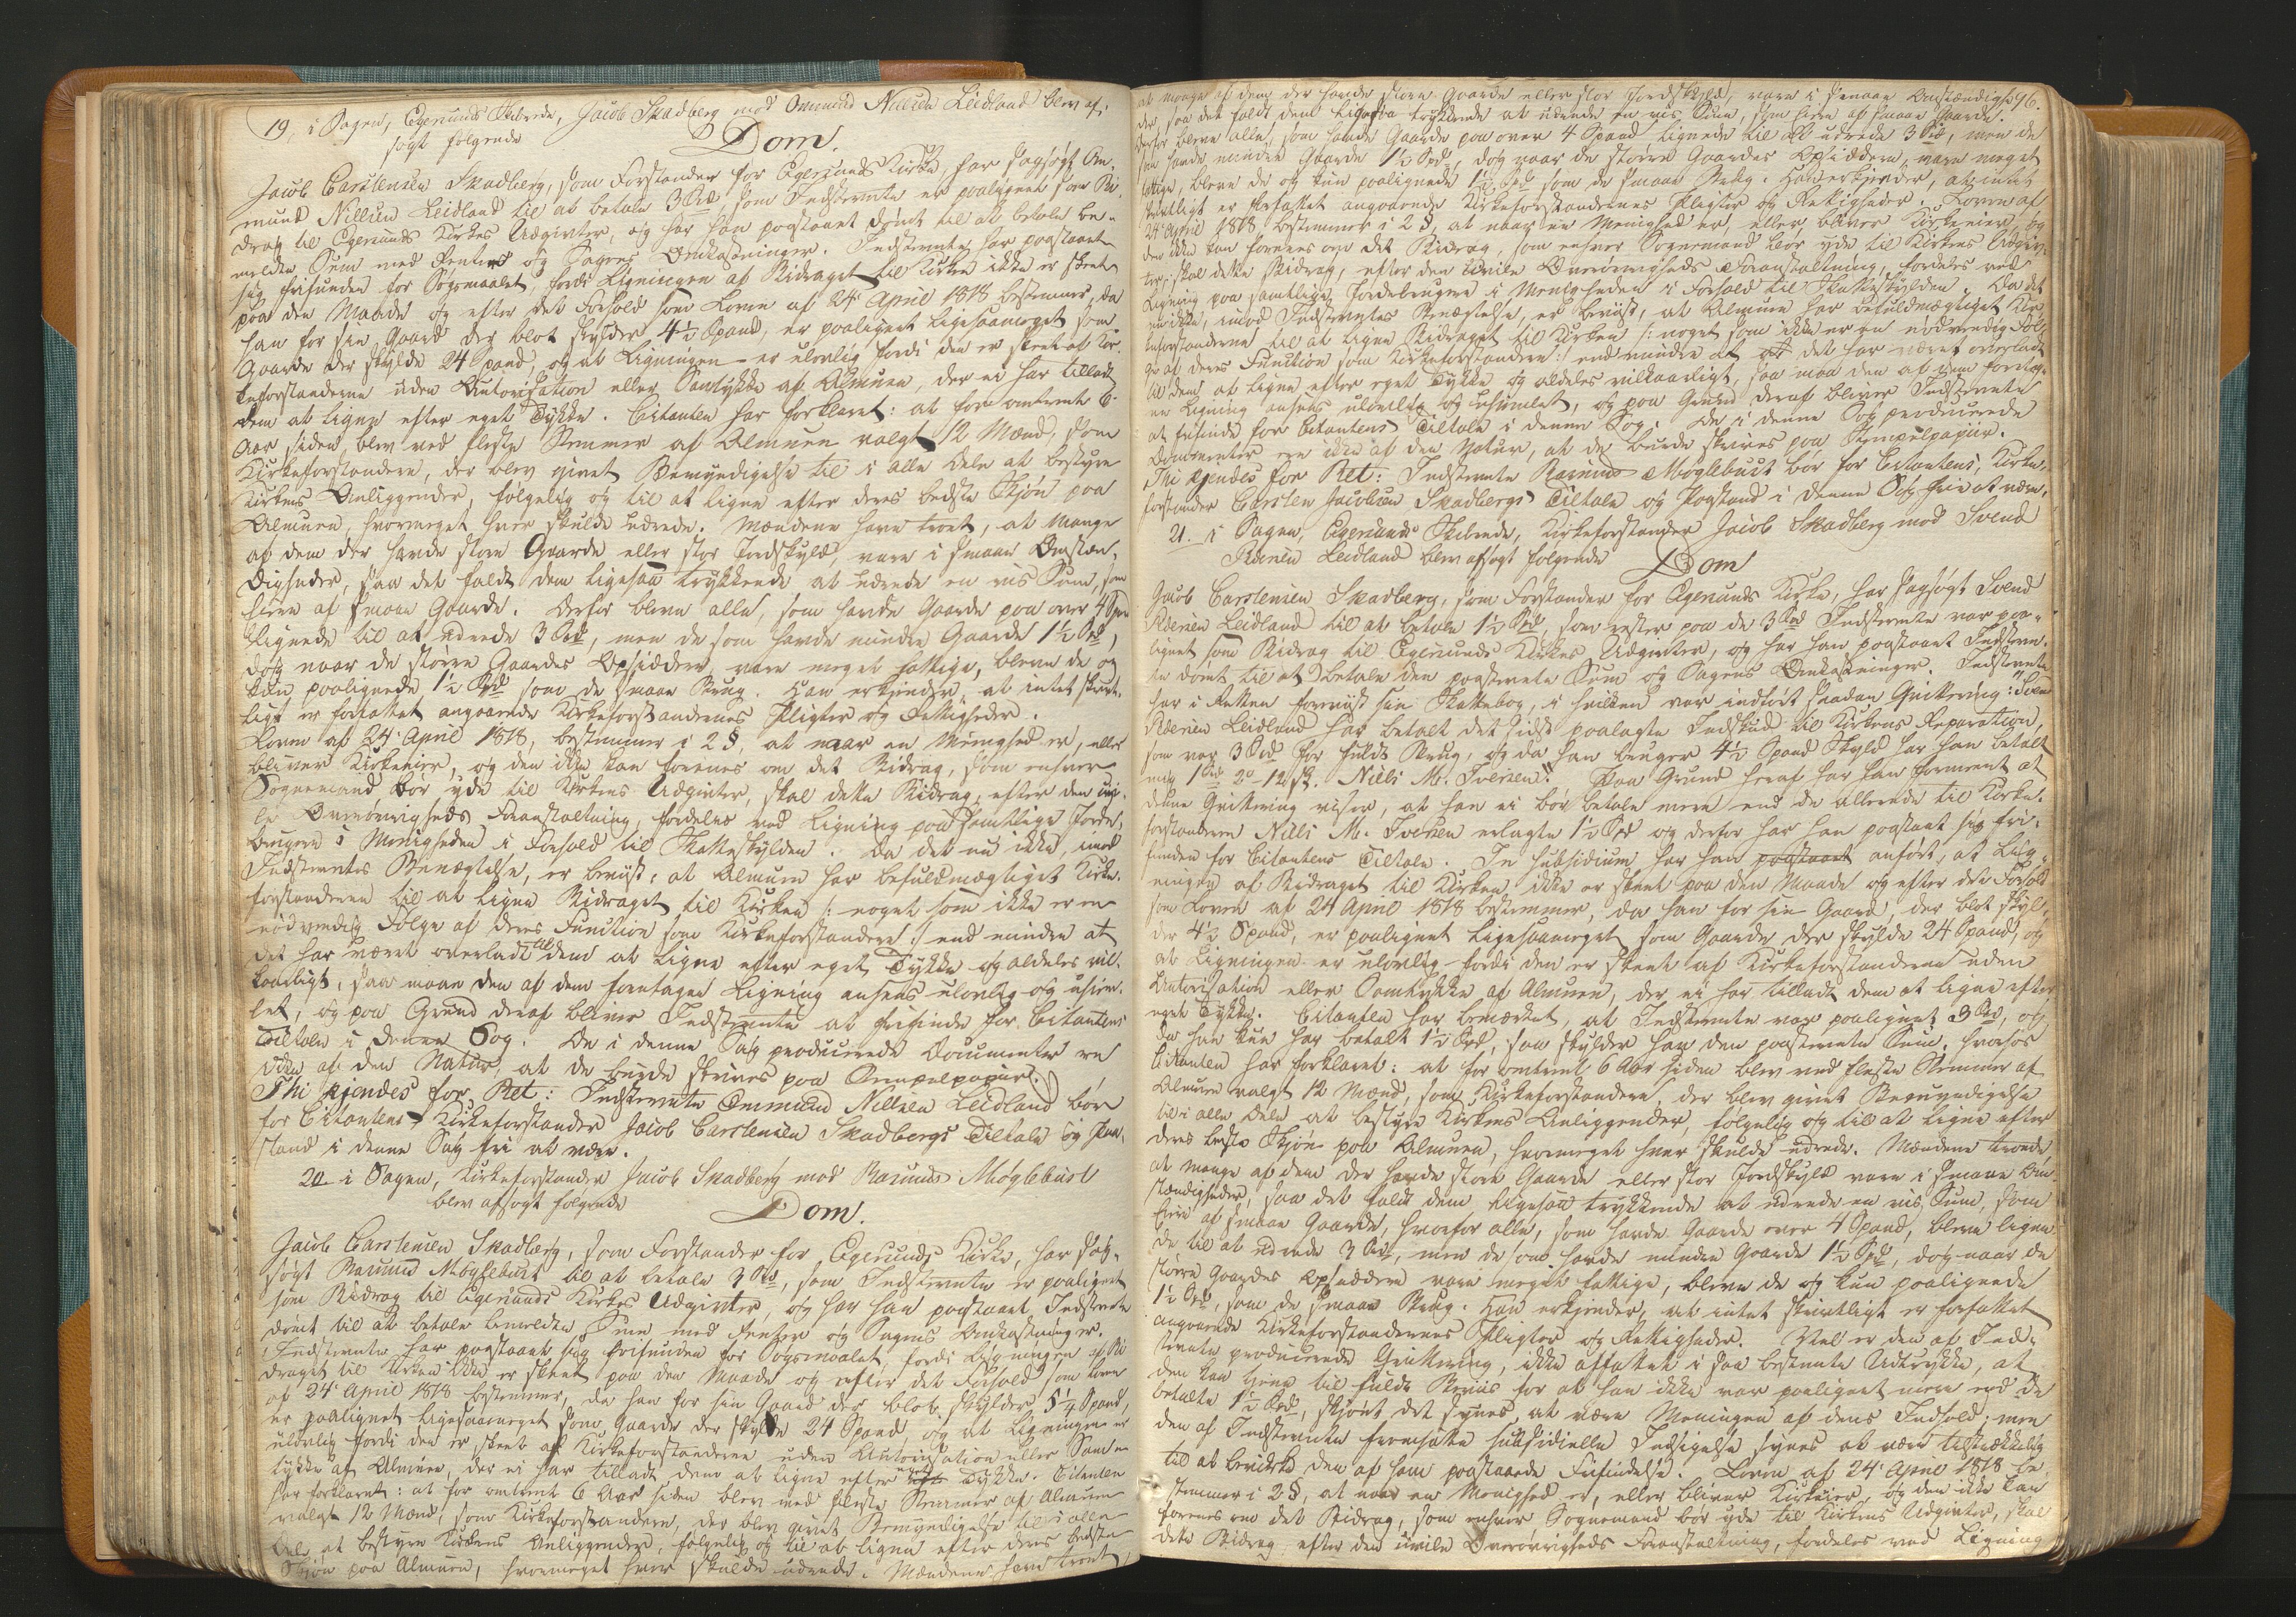 19, i Sagen, Egersunds Skibrede, Jacob Skadberg mod Ommund Nillsen Leidland blev af-
sagt følgende
Dom.
Jacob Carstensen Skadberg, som Forstander for Egersunds Kirke, har sagsøgt Om-
mund Nillsen Leidland til at betale 3 Spd, som Indstevnte er paalignet som Bi-
drag til Egersunds Kirkes Udgivter, og har han paastaaet dømt til at betale be-
meldte Sum med Renter og Sagens Omkostninger. Indstevnte har paastaaet
sig frifunden for Søgsmaalet, fordi Ligningen af Bidraget til Kirken ikke er skeet
paa den Maade og efter det Forhold som Loven af 24 April 1818 bestemmer, da
han for sin Gaard der blot skylder 4½ Spand, er paalignet ligesaameget som
Gaarde der skylde 24 Spand, og at Ligningen er ulovlig fordi den er skeet af Kir-
keforstanderne uden Autorisation eller Samtykke af Almuen, der ei har tilladt
dem at ligne efter eget Tykke. Citanten har forklaret: at for omtrent 6
Aar siden blev ved fleste Stemmer af Almuen valgt 12 Mænd, som
Kirkeforstandere, der blev givet Bemyndigelse til i alle Dele at bestyre
Kirkens Anliggender, følgelig og til at ligne efter deres bedste Skjøn paa
Almuen, hvormeget hver skulde udrede. Mændene have troet, at Mange
af dem der havde store Gaarde eller stor Jordskyld, vare i smaae Omstæn-
digheder, saa det faldt dem ligesaa trykkende at udrede en vis Sum, som
Eiere af smaae Gaarde. Derfor bleve alle, som havde Gaarde paa over 4 Spd
lignede til at udrede 3 Spd, men de som havde mindre Gaarde 1½ Spd,
dog naar de større Gaardes Opsiddere, vare meget fattige, bleve de og
kun paalignede 1½ Spd som de smaae Brug. Han erkjender, at intet skrivt-
ligt er forfattet angaaende Kirkeforstandernes Pligter og Rettigheder.
Loven af 24 April 1818, bestemmer i 2 §, at naar en Menighed er, eller
bliver Kirkeeier, og den ikke kan forenes om det Bidrag, som enhver
Sognemand bør yde til Kirkens Udgivter, skal dette Bidrag, efter den civi-
le Overøvrigheds Foranstaltning, fordeles ved Ligning paa samtlige Jorde-
brugere i Menigheden i Forhold til Matteskylden. Da det nu ikke, imod
Indstevntes Benægtelse, er beviist, at Almuen har befuldmægtiget Kirke-
forstanderne til at ligne Bidraget til Kirken /: noget som ikke er en
nødvendig Følge af deres Function som Kirkeforstandere :/ end mindre at
det har været overladt til dem at ligne efter eget Tykke og aldeles vil-
kaarligt, saa maae den af dem foretagne Ligning ansees ulovlig og uhjem-
let, og paa Grund deraf bliver Indstevnte at frifinde for Citantens
Tiltale i denne Sag. De i denne Sag producerede Documenter ere
ikke af den Natur, at de burde skrives paa Stempelpapiir.
Thi kjendes for Ret: Indstevnte Ommund Nillsen Leidland bør
for Citantens Kirkeforstander Jacob Carstensen Skadbergs Tiltale og Paa-
stand i denne Sag fri at være.
20 i Sagen, Kirkeforstander Jacob Skadberg mod Rasmus Møglebust
blev afsagt følgende
Dom.
Jacob Carstensen Skadberg, som Forstander for Egersunds Kirke, har sag-
søgt Rasmus Møglebust til at betale 3 Spd, som Indstevnte er paalignet
som Bidrag til Egersunds Kirkes Udgivter, og har han paastaaet Indstevnte
dømt til at betale bemeldte Sum med Renter og Sagens Omkostninger.
Indstevnte har paastaaet sig frifunden for Søgsmaalet, fordi Ligningen af Bi-
draget til Kirken ikke er skeet paa den Maade og efter det Forhold som Loven
af 24 April 1818 bestemmer, da han for sin Gaard der blot skylder 5¼ Spand,
er paalignet ligesaameget som Gaarde der skylde 24 Spand, og at Ligningen er
ulovlig fordi den er skeet af Kirkeforstanderne uden Autorisation eller Sam-
tykke af Almuen, der ei har tilladt dem at ligne efter eget Tykke. Citanten
har forklaret: at for omtrent 6 Aar siden blev med fleste Stemmer af Almuen
valgt 12 Mænd, som Kirkeforstandere, der blev givet Bemyndigelse til i alle
Dele at bestyre Kirkens Anliggender, følgelig og til at ligne efter deres bedste
Skjøn paa Almuen, hvormeget hver skulde udrede. Mændene have troet,
96.
at mange af dem der havde store Gaarde eller stor Jordskyld, vare i smaae Omstændighe-
der, saa det faldt dem ligesaa trykkende at udrede en vis Sum, som Eiere af smaae Gaarde.
Derfor bleve alle, som havde Gaarde paa over 4 Spand lignede til at udrede 3 Spd, men de
som havde mindre Gaarde 1½ Spd, dog naar de større Gaardes Opsiddere, vare meget
fattige, bleve de og kun paalignede 1½ Spd som de smaae Brug. Han erkjender, at intet
skrivtligt er forfattet angaaende Kirkeforstandernes Pligter og Rettigheder. Loven af
24 April 1818, bestemmer i 2 §, at naar en Menighed er, eller bliver Kirkeeier, og
den ikke kan forenes om det Bidrag, som enhver Sognemand bør yde til Kirkens Udgiv-
ter, skal dette Bidrag, efter den civile Overøvrigheds Foranstaltning, fordeles ved
Ligning paa samtlige Jordebrugere i Menigheden i Forhold til Matteskylden. Da det
nu ikke, imod Indstevntes Benægtelse, er beviist, at Almuen har befuldmægtiget Kir-
keforstanderne til at ligne Bidraget til Kirken /: noget som ikke er en nødvendig Føl-
ge af deres Function som Kirkeforstandere :/ end mindre at det har været overladt
til dem at ligne efter eget Tykke og aldeles vilkaarligt, saa maa den af dem foretag-
ne Ligning ansees ulovlig og uhjemlet, og paa Grund deraf bliver Indstevnte
at frifinde for Citantens Tiltale i denne Sag. De i denne Sag producerede
Documenter ere ikke af den Natur, at de burde skrives paa Stempelpapiir.
Thi kjendes for Ret: Indstevnte Rasmus Møglebust bør for Citantens, Kirke-
forstander Carsten Jacobsen Skadbergs Tiltale og Paastand i denne Sag frie at være.
21. i Sagen, Egersunds Skibrede, Kirkeforstander Jacob Skadberg mod Svend
Leidland blev afsagt følgende
Dom
Jacob Carstensen Skadberg, som Forstander for Egersunds Kirke, har sagsøgt Svend
Leidland til at betale 1½ Spd, som rester paa de 3 Spd Indstevnte var paa-
lignet som Bidrag til Egersunds Kirkes Udgivter, og har han paastaaet Indstevn-
te dømt til at betale den paastevnte Sum og Sagens Omkostninger. Indstevnte
har i Retten foreviist sin Skattebog, i hvilken var indført saadan Qvittering: "Svend
Leidland har betalt det sidst paalagte Indskud til Kirkens Reparation,
som var 3 Spd for fuldt Brug, og da han bruger 4½ Spand Skyld har han betalt
mig 1 Spd 2 12 ß. Nills M. Iversen". Paa Grund heraf har han formeent at
denne Qvittering viser, at han ei bør betale mere end de allerede til Kirke-
forstanderen Nills M. Iversen erlagte 1½ Spd og derfor har han paastaaet sig fri-
funden for Citantens Tiltale. In subsidium har han paastaaet anført, at Lig-
ningen af Bidraget til Kirken ikke er skeet paa den Maade og efter det Forhold
som Loven af 24 April 1818 bestemmer, da han for sin Gaard, der blot skyl-
der 4½ Spand, er paalignet ligesaameget som Gaarde der skylde 24 Spand, og
at Ligningen er ulovlig fordi den er skeet af Kirkeforstanderne uden
Autorisation eller Samtykke af Almuen, der ei har tilladt dem at ligne efter
eget Tykke. Citanten har bemærket, at Indstevnte var paalignet 3 Spd, og
da han kun har betalt 1½ Spd, saa skylder han den paastevnte Sum, hvorhos
Citanten har forklaret: at for omtrent 6 Aar siden blev ved fleste Stemmer af
Almuen valgt 12 Mænd, som Kirkeforstandere, der blev givet Bemyndigelse
til i alle Dele at bestyre Kirkens Anliggender, følgelig og til at ligne efter
deres bedste Skjøn paa Almuen, hvormeget hver skulde udrede. Mændene troede
at mange af dem der havde store Gaarde eller stor Jordskyld vare i smaae Om-
stændigheder, saa det faldt dem ligesaa trykkende at udrede en vis Sum, som
Eiere af smaae Gaarde, hvorfor alle, som havde Gaarde over 4 Spand, bleve ligne-
de til at udrede 3 Spd, men de som havde mindre Gaarde 1½ Spd, dog naar de
større Gaardes Opsiddere vare meget fattige, bleve de og kun paalignede
1½ Spd, som de smaae Brug. Han erkjender, at intet skrivtligt er forfattet
angaaende Kirkeforstandernes Pligter og Rettigheder. Vel er den af Ind-
stevnte producerede Qvittering, ikke affattet i saa bestemte Udtrykke, at
den kan tjene til fuldt Beviis for at han ikke var paalignet mere end de
betalte 1½ Spd, skjønt det synes at være Meningen af dens Indhold; men
den af Indstevnte fremsatte subsidielle Indsigelse synes at være tilstrækkelig
til at bevirke den af ham paastaaede Frifindelse. Loven af 24 April 1818 be-
stemmer i 2 §, at naar en Menighed er, eller bliver Kirkeeier, og den ikke kan
forenes om det Bidrag, som enhver Sognemand bør yde til Kirkens Udgivter, skal
dette Bidrag efter den civile Overøvrigheds Foranstaltning, fordeles ved Ligning